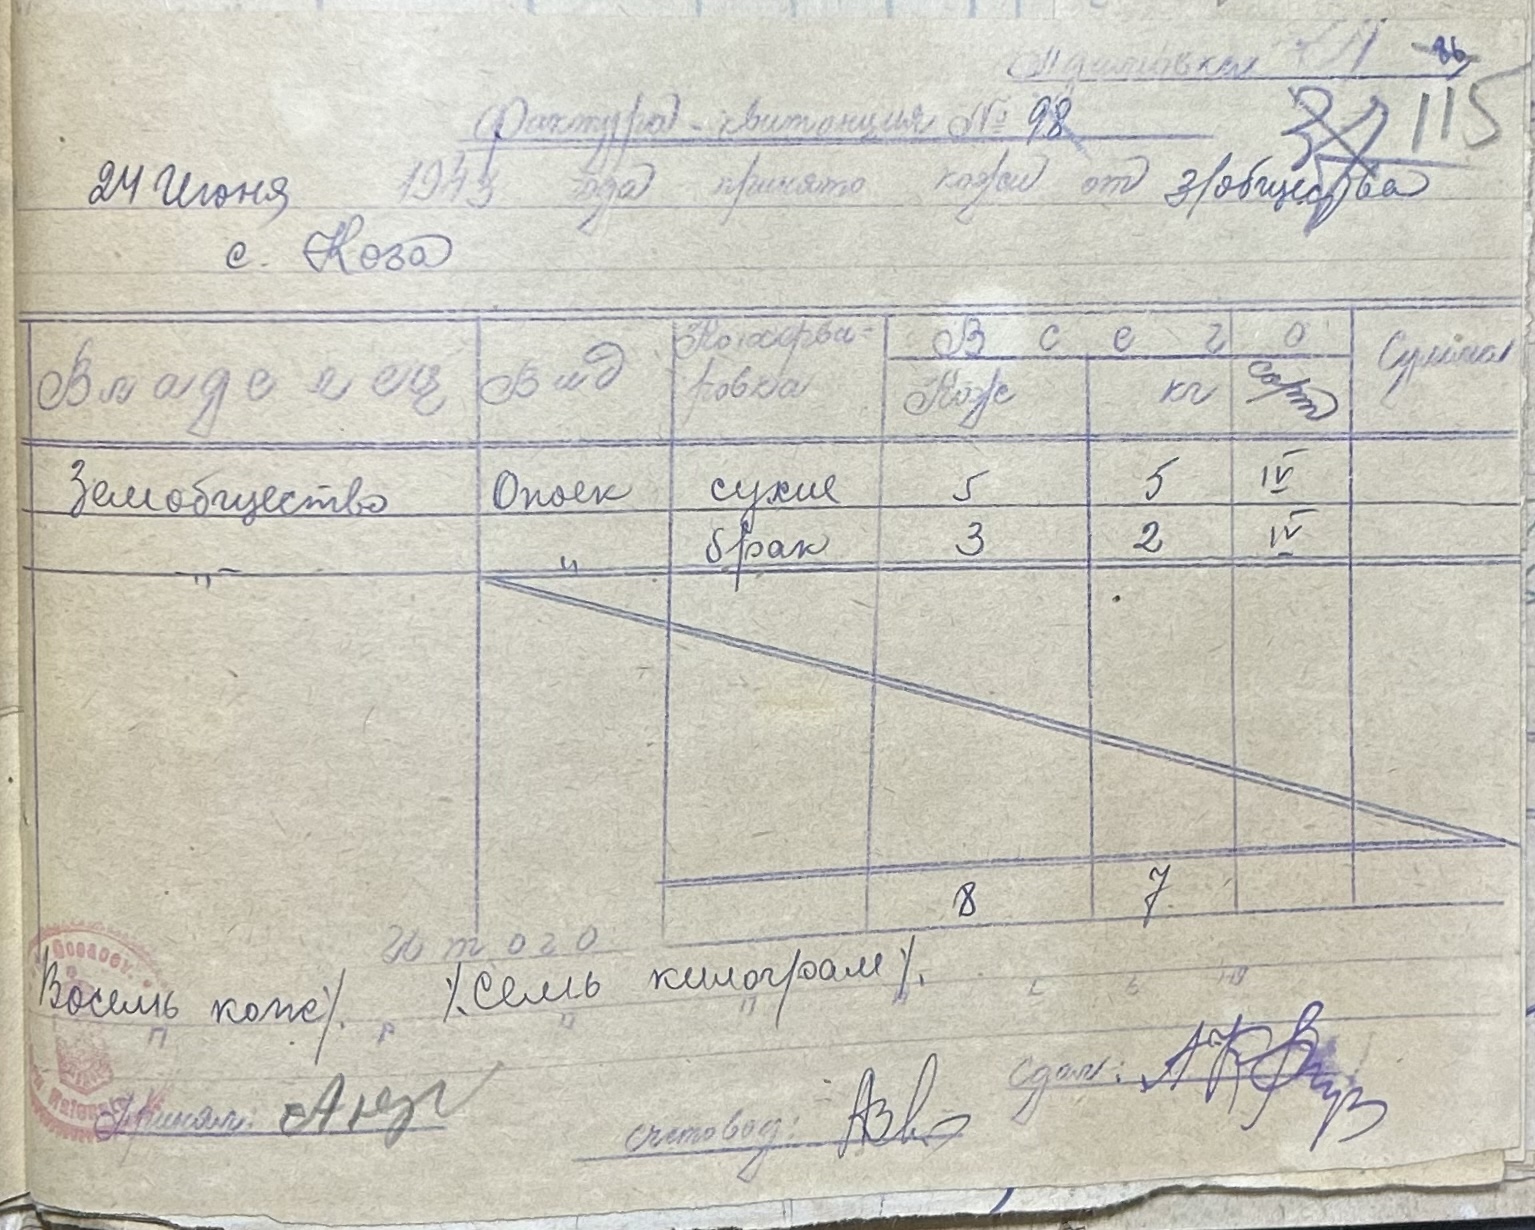 86
Фактура-квитанция № 98
115
24 Июня 1943 года принято кожи от з/общества
с. Коза
Владелец Вид Консерви-ровка Всего Сумма
Кож кг сорт
Земобщество Опоек сухие 5 5 IV
" " брак 3 2 IV
8 7
Итого
Восемь кож/. /.Семь килограм/.
Принял: счетовод: Сдал: